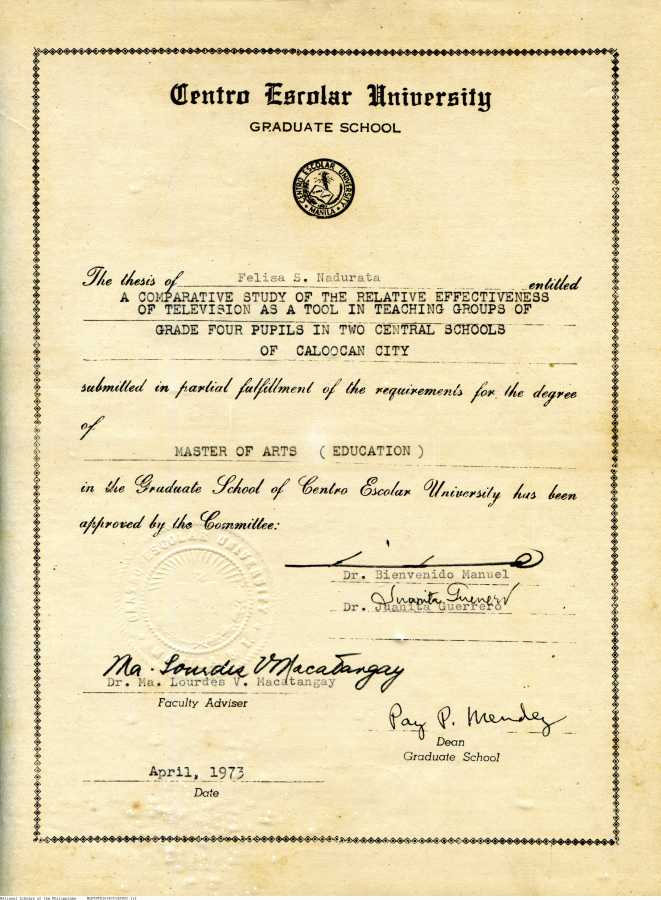 Centro Escolar University
GRADUATE SCHOOL
CENTRO ESCOLAR UNIVERSITY
• MANILA •
The thesis of Felisa S. Nadurata entitled
A COMPARATIVE STUDY OF THE RELATIVE EFFECTIVENESS
OF TELEVISION AS A TOOL IN TEACHING GROUPS OF
GRADE FOUR PUPILS IN TWO CENTRAL SCHOOLS
OF CALOOCAN CITY
submitted in partial fulfillment of the requirements for the degree
of
MASTER OF ARTS ( EDUCATION )
in the Graduate School of Centro Escolar University has been
approved by the Committee:
Dr. Bienvenido Manuel
Juanita Guerrero
Dr. Juanita Guerrero
Ma. Lourdes V Macatangay
Dr. Ma. Lourdes V. Macatangay
Faculty Adviser
Paz P. Mendez
Dean
Graduate School
April, 1973
Date
National Library of the Philippines